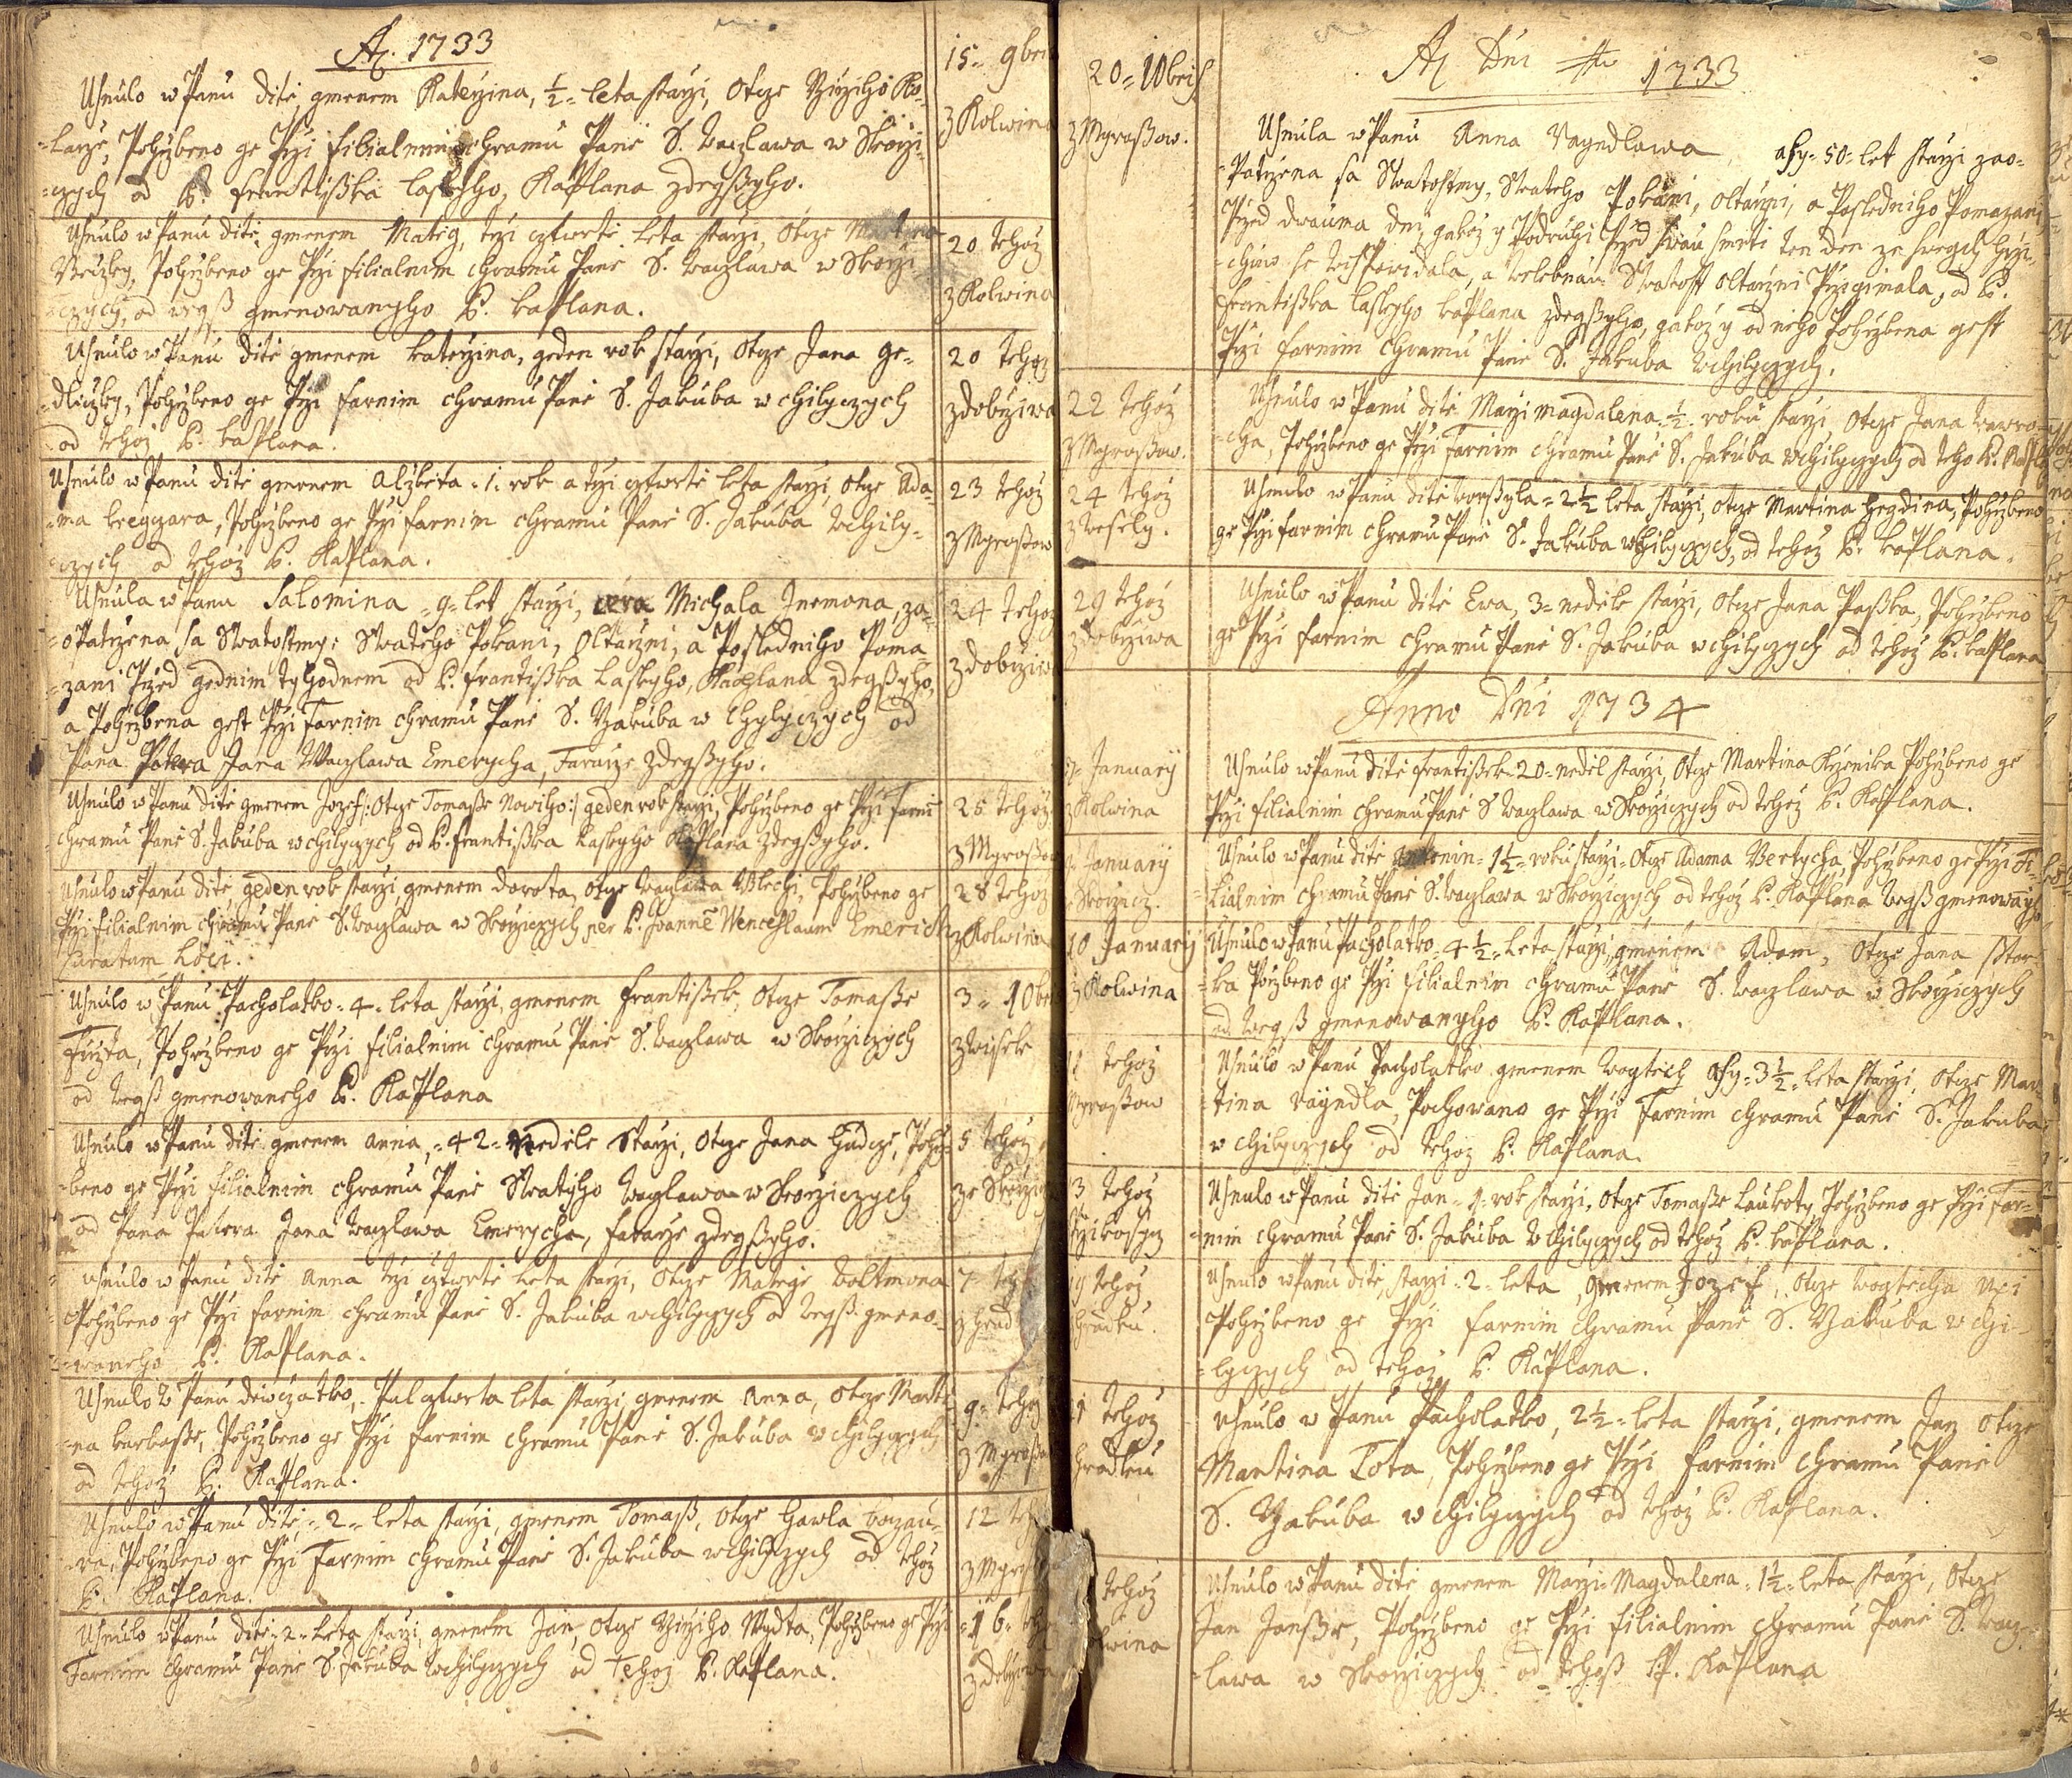 A. 1733
Usnulo w Panu dite gmenem Kateržina, ½ leta starži, Otcze Girzjho Ko-
=larže, Pohržbeno ge Prži filialnim chramu Panie S. Waczlawa w Skorži-
=czych od P. Frantisska Laskyho, Kaplana zdegssyho.
15 9bris
z Kolwina
Usnulo w Panu dite gmenem Mateg, trži cztwrtě leta starži, Otcze Martina
Pohržbeno ge Prži filialnim chramu Panie S. Waczlawa w Skorži-
=czych, od wegss gmenowanyho P. kaplana.
20 tehož
z Kolwina
Usnulo w Panu dite gmenem kateržina, geden rok starži, Otcze Jana Ge-
=dliczky, Pohržbeno ge Prži farnim chramu Panie S. Jakuba w Chilyczych
od tehož P. kaplana.
20 tehož
z dobrziwa
Usnulo w Panu dite gmenem Alžběta 1 rok a trži cztwrtě leta starži, Otcze Ada-
=ma kregczara, Pohržbeno ge Prži farnim chramu Panie S. Jakuba w Chily-
=czych od tehož P. Kaplana.
23 tehož
z Myrossow
Usnula w Panu Salomina 9 let starži, cera Michala Jnemona, za-
=opatržena sa Swatostmy: Swateho Pokani, Oltaržni, a Posledniho Poma
=zani Pržed gednim tyhodnem od P. Frantisska Laskyho, Kaplana zdegssyho,
a Pohržbena gest Prži Farnim chramu Panie S. Yakuba w Chylyczych od
Pana Patera Jana Waczlawa Emerycha, Fararže zdegssyho.
24 tehož
z dobrziwa
Usnulo w Panu dite gmenem Jozef |: Otcze Tomasse Nowiho :| geden rok starži, Pohržbeno ge Prži farni
chramu Panie S. Jakuba w Chilyczych od P. Frantisska Laskyho Kaplana zdegssyho.
25 tehož
z Myrossow
Usnulo w Panu dite, geden rok starži, gmenem dorota, Otcze Waczlawa Pohržbeno ge
Prži filialnim chramu Panie S. Waczlawa w Skoržiczych per P. Joanne Wenceslaum Emerich
Curatum Loci.
28 tehož
z Kolwina
Usnulo w Panu Pacholatko 4 leta starži, gmenem Frantissek, Otcze Tomasse
Pohržbeno ge Prži filialnim chramu Panie S. Waczlawa w Skoržiczych
od wegss gmenowaneho P. Kaplana
3 10bris
Usnulo w Panu dite gmenem Anna, 42 Neděle Starži, Otcze Jana Hudcze, Pohrž-
=beno ge Prži filialnim chramu Panie Swatyho Waczlawa w Skoržiczych
od Pana Patera Jana Waczlawa Emerycha, fararže zdegssyho.
5 tehož
ze Skoržicz
Usnulo w Panu dite Anna trži cztwrtě leta starži, Otcze Mategie
Pohržbeno ge Prži farnim chramu Panie S. Jakuba w Chilyczych od wegss gmeno-
=waneho P. Kaplana.
7 tehož
z Hrad
Usnulo w Panu děwczatko, Pul cztwrta leta starži, gmenem Anna, Otcze Marti-
=na Pohržbeno ge Prži farnim chramu Panie S. Jakuba w Chilyczych
od tehož P. Kaplana.
9 tehož
z Myrossow
Usnulo w Panu dite, 2 leta starži, gmenem Tomass, Otcze Hawla
Pohržbeno ge Prži Farnim chramu Panie S. Jakuba w Chilyczych od tehož
P. Kaplana.
12 teho
z Myross
Usnulo w Panu dite 2 leta starži, gmenem Jan, Otcze Girzjho Pohržbeno ge Prži
Farnim chramu Panie S. Jakuba w Chilyczych od tehož P. Kaplana.
16 teh
z dobrziwa
A Dni 1733
20 10bris
z Myrossow.
Usnula w Panu Anna Rayndlowa asy 50 let starži zao-
=patržena sa Swatostmy, Swateho Pokani, Oltaržni, a Posledniho Pomazani
Pržed dwauma dny, gakož y Podruhi Pržed swau smrti ten den ze swegch hržj-
=chuw se wispowidala, a welebnau Swatost Oltaržni Pržigimala, od P.
Frantisska Laskyho kaplana zdegssyho, gakož y od něho Pohržbena gest
Prži farnim chramu Panie S. Jakuba w Chilyczych.
22 tehož
z Myrossow.
Usnulo w Panu dite Marži Magdalena ½ roku starži Otcze Jana Wawro-
=cha, Pohržbeno ge Prži Farnim chramu Panie S. Jakuba w Chilyczych od teho P. Kapl
24 tehož
z Wesely.
Usnulo w Panu dite Worssyla 2½ leta starži, Otcze Martina Hegdina, Pohržbeno
ge Prži farnim chramu Panie S. Jakuba w Chilyczych, od tehož P. kaplana.
29 tehož
z dobrziwa
Usnulo w Panu dite Ewa, 3 neděle starži, Otcze Jana Passka, Pohržbeno
ge Prži farnim chramu Panie S. Jakuba w Chilyczych od tehož P. kaplana
Anno Dni 1734
January
z Kolwina
Usnulo w Panu dite Frantissek 20 neděl starži, Otcze Martina Pohržbeno ge
Prži filialnim chramu Panie S Waczlawa w Skoržiczych od tehož P. Kaplana.
January
Skoržicz.
Usnulo w Panu dite Antonin 1½ roku starži Otcze Adama Bertycha, Pohržbeno ge Prži Fi-
=lialnim chramu Panie S. Waczlawa w Skoržiczych od tehož P. Kaplana wegss gmenowanyho
10 January
z Kolwina
Usnulo w Panu Pacholatko 4½ leta starži, gmenem Adam, Otcze Jana Sstor-
=ka Pohržbeno ge Prži filialnim chramu Panie S. Waczlawa w Skoržiczych
od wegss gmenowanyho P. Kaplana.
tehož
Myrossow
Usnulo w Panu Pacholatko gmenem Wogtěch asy 3½ leta starži, Otcze Mar-
=tina Rayndla, Pochowano ge Prži Farnim chramu Panie S. Jakuba
w Chilyczych od tehož P. Kaplana.
3 tehož
Przikosycz
Usnulo w Panu dite Jan 1 rok starži, Otcze Tomasse Laukoty, Pohržbeno ge Prži Far-
=nim chramu Panie S. Jakuba w Chilyczych od tehož P. kaplana.
19 tehož
Hradku.
Usnulo w Panu dite, starži 2 leta, gmenem Jozef, Otcze Wogtěcha
Pohržbeno ge Prži farnim chramu Panie S. Yakuba w Chi-
=lyczych od tehož P. Kaplana.
21 tehož
Hradku
Usnulo w Panu Pacholatko, 2½ leta starži, gmenem Jan Otcze
Martina Tota, Pohržbeno ge Prži farnim chramu Panie
S. Yakuba w Chilyczych od tehož P. Kaplana.
tehož
olwina
Usnulo w Panu dite gmenem Marži Magdalena 1½ leta starži, Otcze
Jan Pohržbeno ge Prži filialnim chramu Panie S. Wacz-
=lawa w Skoržiczych od tehož P. Kaplana